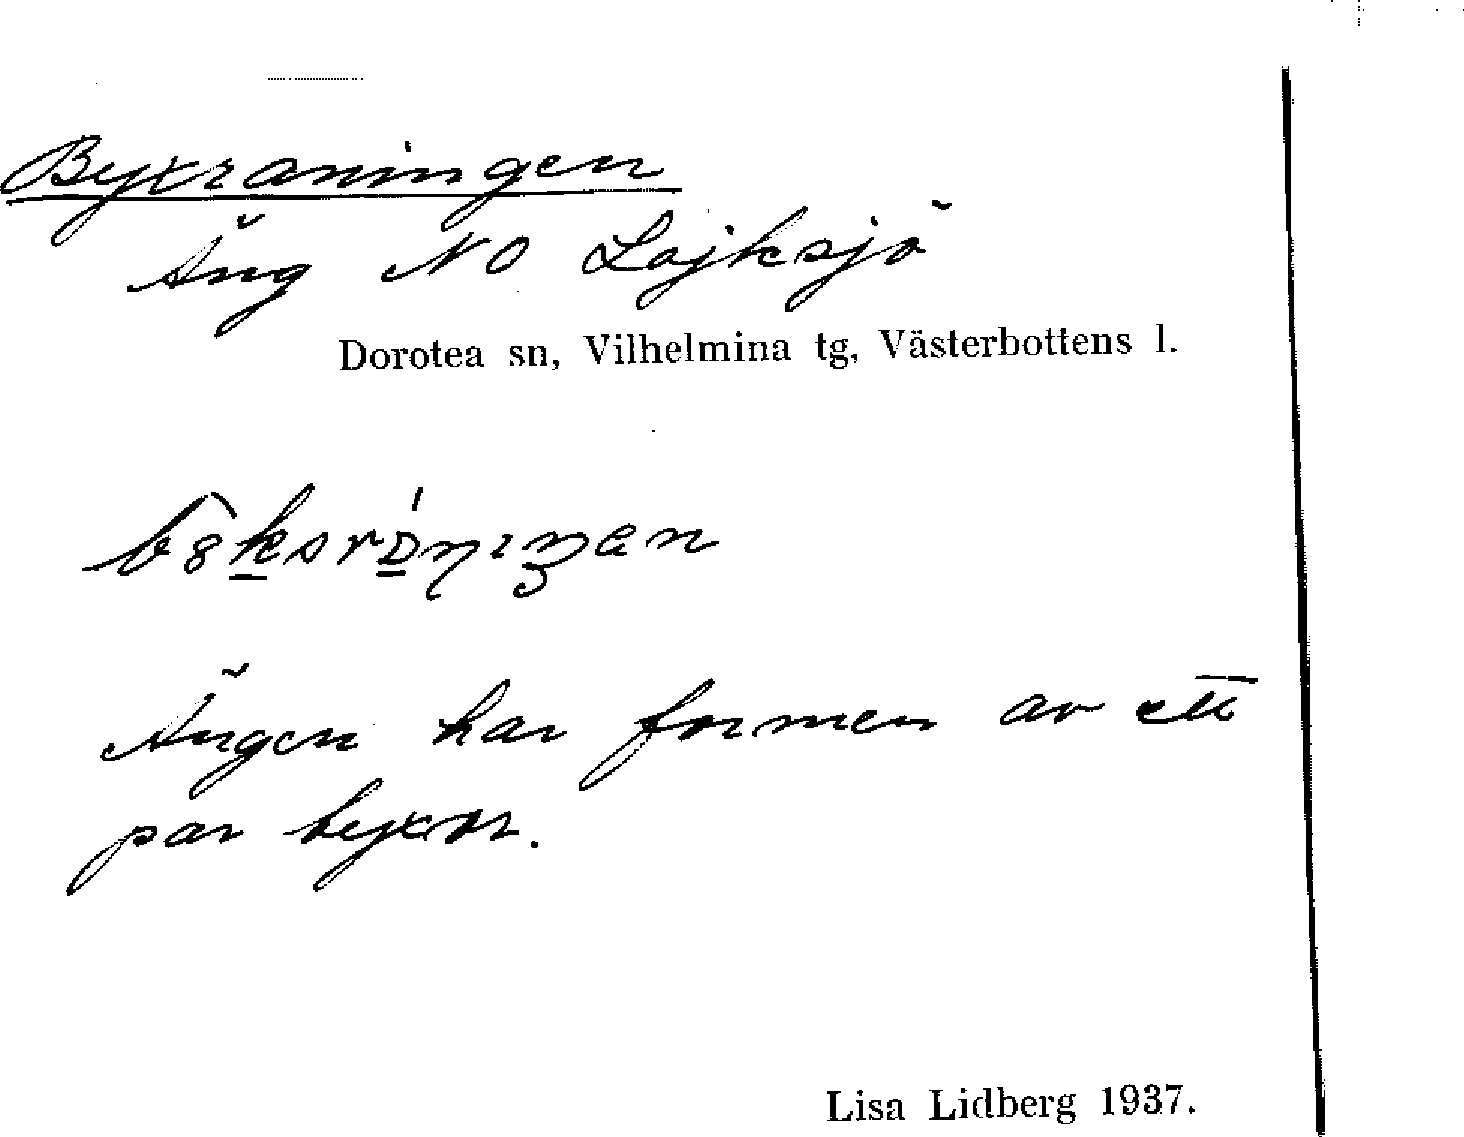 Byxraningen
Äng NO Lajksjö
Dorotea sn, Vilhelmina tg, Västerbottens l.
Ängen har formen av ett
par byxor.
Lisa Lidberg 1937.